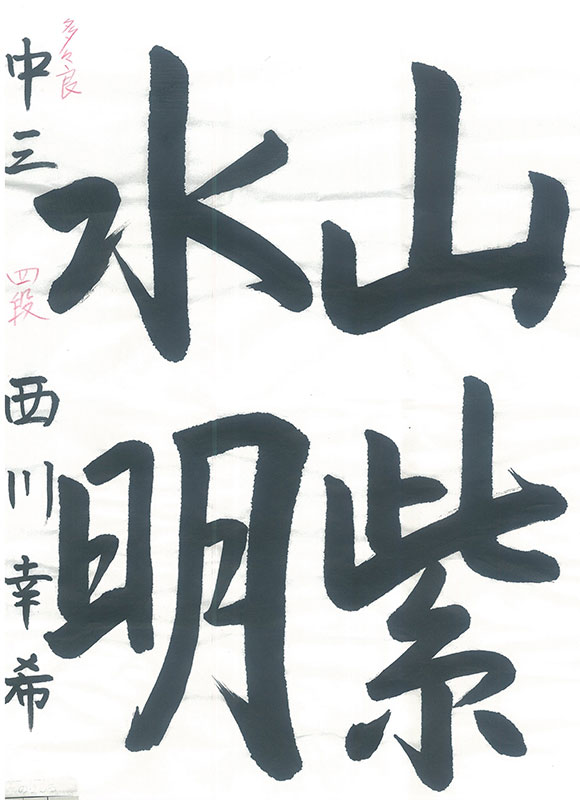 山紫
水明
多々良
中三 四段 西川幸希